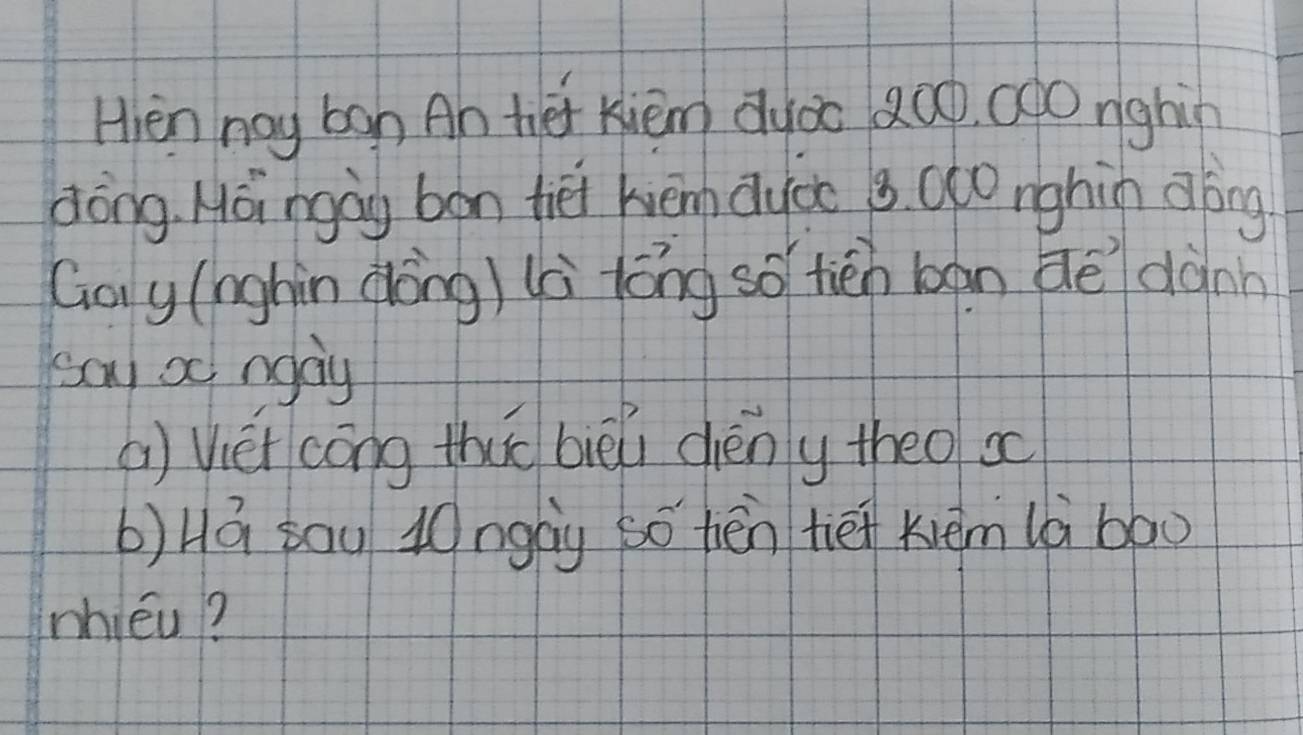 Hiện nay bạn An tiết kiệm được 200.000 nghìn
đồng. Mỗi ngày bạn tiết kiệm được 3.000 nghìn đồng
Gọi y (nghìn đồng) là tổng số tiền bạn để dành
sau x ngày
a) Viết công thức biểu diễn y theo x
b) Hỏi sau 10 ngày số tiền tiết kiệm là bao
nhiêu?